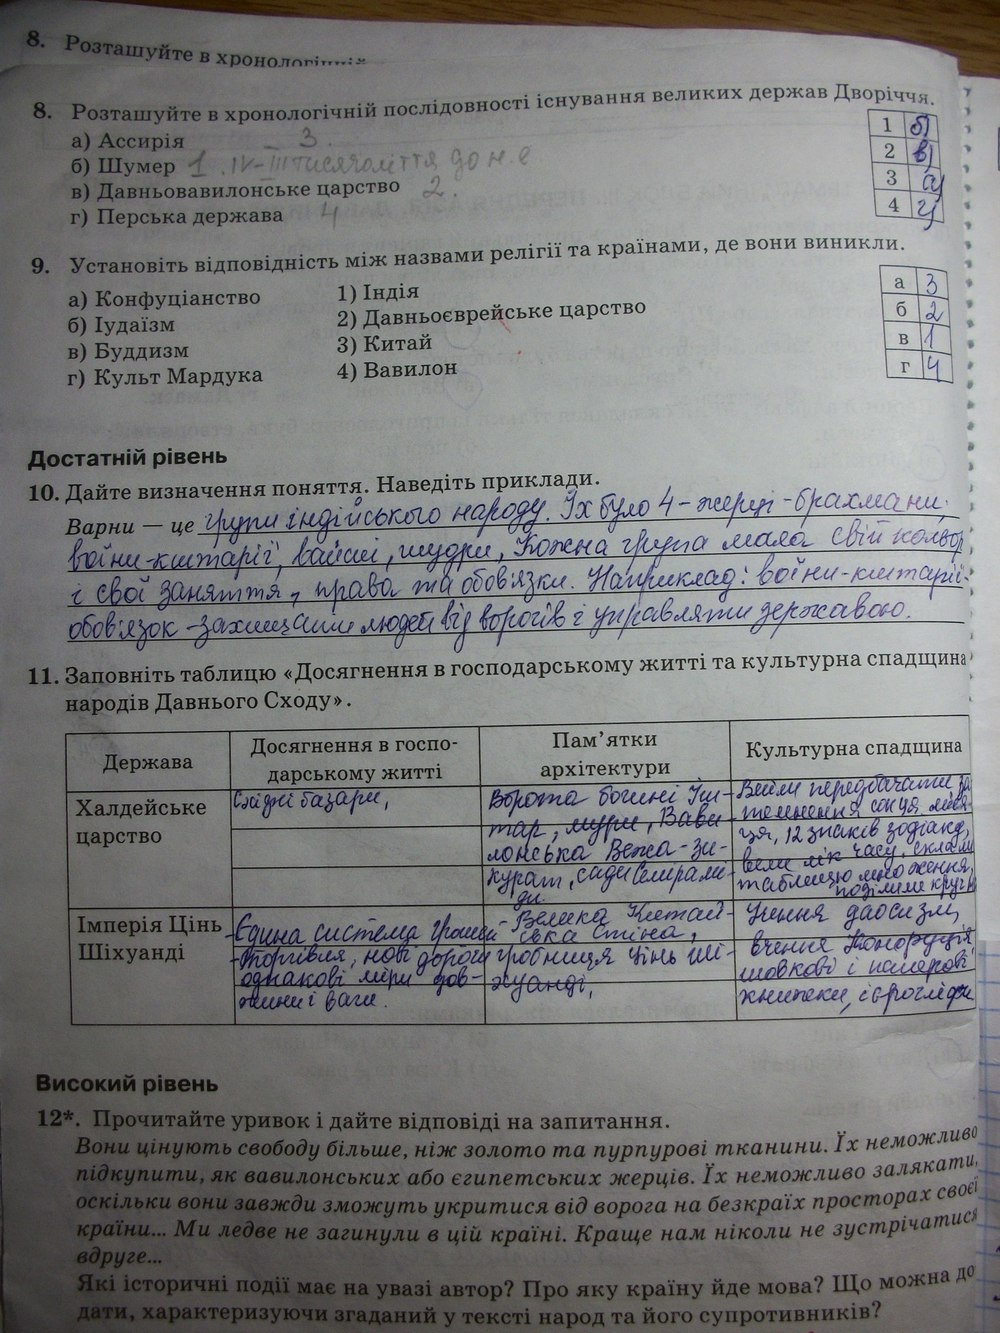 8. Розташуйте в хронологічній
8. Розташуйте в хронологічній послідовності існування великих держав Дворіччя.
а) Ассирія 3.
б) Шумер 1. IV-III тисячоліття до н.е
в) Давньовавилонське царство 2.
г) Перська держава 4
1 б)
2 в)
3 а)
4 г)
9. Установіть відповідність між назвами релігії та країнами, де вони виникли.
а) Конфуціанство 1) Індія
б) Іудаїзм 2) Давньоєврейське царство
в) Буддизм 3) Китай
г) Культ Мардука 4) Вавилон
а 3
б 2
в 1
г 4
Достатній рівень
10. Дайте визначення поняття. Наведіть приклади.
Варни — це групи індійського народу. Їх було 4-жерці-брахмани,
воїни-кштарії, вайсиі, шудри, Кожна група мала свій колір
і свої заняття, права та обов'язки. Наприклад: воїни-кштарії-
обов'язок-захищати людей від ворогів і управляти державою.
11. Заповніть таблицю «Досягнення в господарському житті та культурна спадщина
народів Давнього Сходу».
Держава
Досягнення в госпо-
дарському житті
Пам’ятки
архітектури
Культурна спадщина
Халдейське
царство
Східні базари,
Ворота богині Іш-
тар, мури, Вави-
лонська Вежа-зи-
курат, сади Семірамі-
ди.
-Вміли передбачати за-
темнення сонця, міся-
ця, 12 знаків зодіаку,
вели лік часу, склали
таблицю множення,
поділили круг
Імперія Цінь
Шіхуанді
-Єдина система грошей
-торгівля, нові дороги
однакові міри дов-
жини і ваги.
-Велика Китай-
ська стіна,
гробниця Цінь ши-
хуанді,
Учення даосизм,
вчення Конфуція,
шовкові і паперові
книжки, ієрогліфи
Високий рівень
12*. Прочитайте уривок і дайте відповіді на запитання.
Вони цінують свободу більше, ніж золото та пурпурові тканини. Їх неможливо
підкупити, як вавилонських або єгипетських жерців. Їх неможливо залякати,
оскільки вони завжди зможуть укритися від ворога на безкраїх просторах своєї
країни... Ми ледве не загинули в цій країні. Краще нам ніколи не зустрічатися
вдруге...
Які історичні події має на увазі автор? Про яку країну йде мова? Що можна до
дати, характеризуючи згаданий у тексті народ та його супротивників?